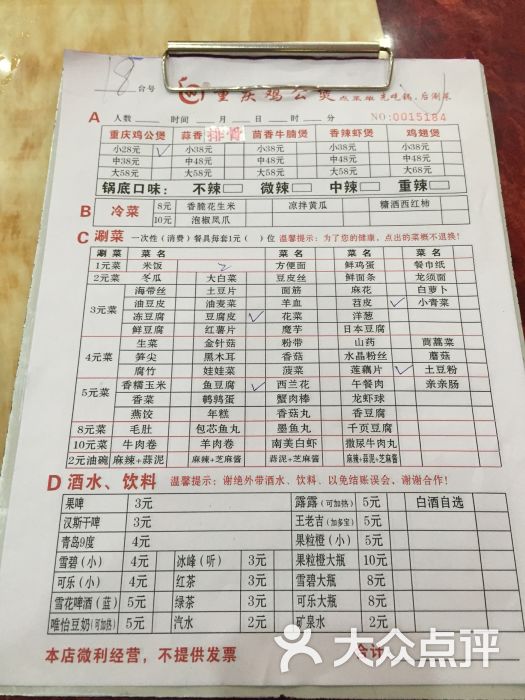 8 台号 重庆鸡公煲 点菜单 先吃锅,后涮菜
A 人数 时间 月 日 时 分 NO:0015184
重庆鸡公煲 蒜香排骨 茴香牛腩煲 香辣虾煲 鸡翅煲
小28元 ✓ 小38元 小38元 小38元 小38元
中38元 中48元 中48元 中48元 中48元
大58元 大68元 大58元 大68元 大58元
锅底口味: 不辣□ 微辣□ 中辣□ 重辣□
B 冷菜 8元 香脆花生米 凉拌黄瓜 糖洒西红柿
10元 泡椒凤爪
C 涮菜 一次性(消费)餐具每套1元( )位 温馨提示:为了您的健康,点出的菜概不退换!
涮菜 菜名 菜名 菜名 菜名 菜名
1元菜 米饭 2 方便面 鲜鸡蛋 餐巾纸
2元菜 冬瓜 大白菜 豆皮丝 鲜面条 龙须面
3元菜 海带丝 土豆片 面筋 麻花 白萝卜
油豆皮 油麦菜 羊血 苕皮 ✓ 小青菜
冻豆腐 豆腐皮 ✓ 花菜 洋葱
鲜豆腐 红薯片 魔芋 日本豆腐
4元菜 生菜 金针菇 粉带 山药 茼蒿菜
笋尖 黑木耳 香菇 水晶粉丝 蘑菇
腐竹 娃娃菜 菠菜 莲藕片 ✓ 土豆粉
5元菜 香糯玉米 鱼豆腐 ✓ 西兰花 午餐肉 亲亲肠
香菜 鹌鹑蛋 蟹肉棒 龙虾球
燕饺 年糕 香菇丸 香豆腐
8元菜 毛肚 包芯鱼丸 墨鱼丸 千页豆腐
10元菜 牛肉卷 羊肉卷 南美白虾 撒尿牛肉丸
2元油碗 麻辣+蒜泥 麻辣+芝麻酱 蒜泥+芝麻酱 麻辣+蒜泥+芝麻酱
D 酒水、饮料 温馨提示:谢绝外带酒水、饮料、以免结账误会,谢谢合作!
果啤 3元 露露(可加热) 5元 白酒自选
汉斯干啤 3元 王老吉(加多宝) 5元
青岛9度 4元 果粒橙(小) 5元
雪碧(小) 4元 冰峰(听) 3元 果粒橙大瓶 10元
可乐(小) 4元 红茶 3元 雪碧大瓶 8元
雪花啤酒(蓝) 5元 绿茶 3元 可乐大瓶 8元
唯怡豆奶(可加热) 5元 汽水 2元 矿泉水 2元
本店微利经营,不提供发票 合计
大众点评